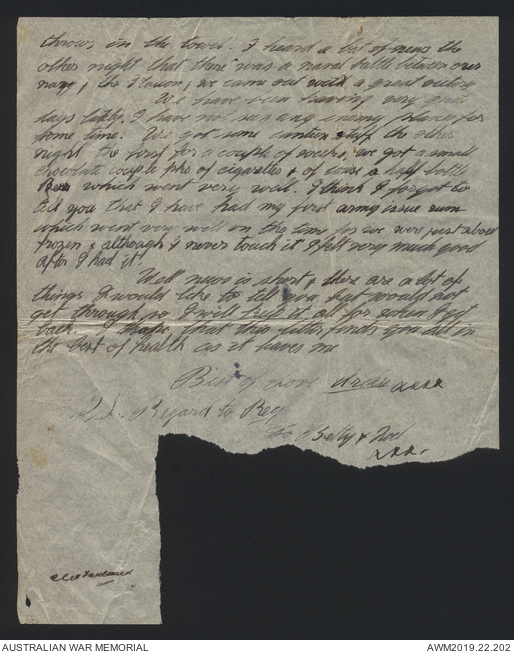 throws in the towel. I heard a bit of news the
other night that there was a naval battle between our
navy & the Italian, we came out with a great victory
We have been having very
days lately, I have not seen any enemy planes for
some time. We got some canteen stuff the other
night the first for a couple of weeks, we got a small
chocolate couple pks of cigarettes & of course a half bottle
Beer which went very well. I think I forgot to
tell you that I have had my first army issue rum
which went very well in the time for we were just about
frozen & although I never touch it I felt very much good
after I had it.
Well news is short & there are a lot of
things I would like to tell you but would not
get through so I will keep it all for when I get
back. I hope that this letter finds you all in
the best of health as it leaves me
Best of Love xxxx
P.S. Regard to Reg
To Betty &
xxx.
AUSTRALIAN WAR MEMORIAL
AWM2019.22.202